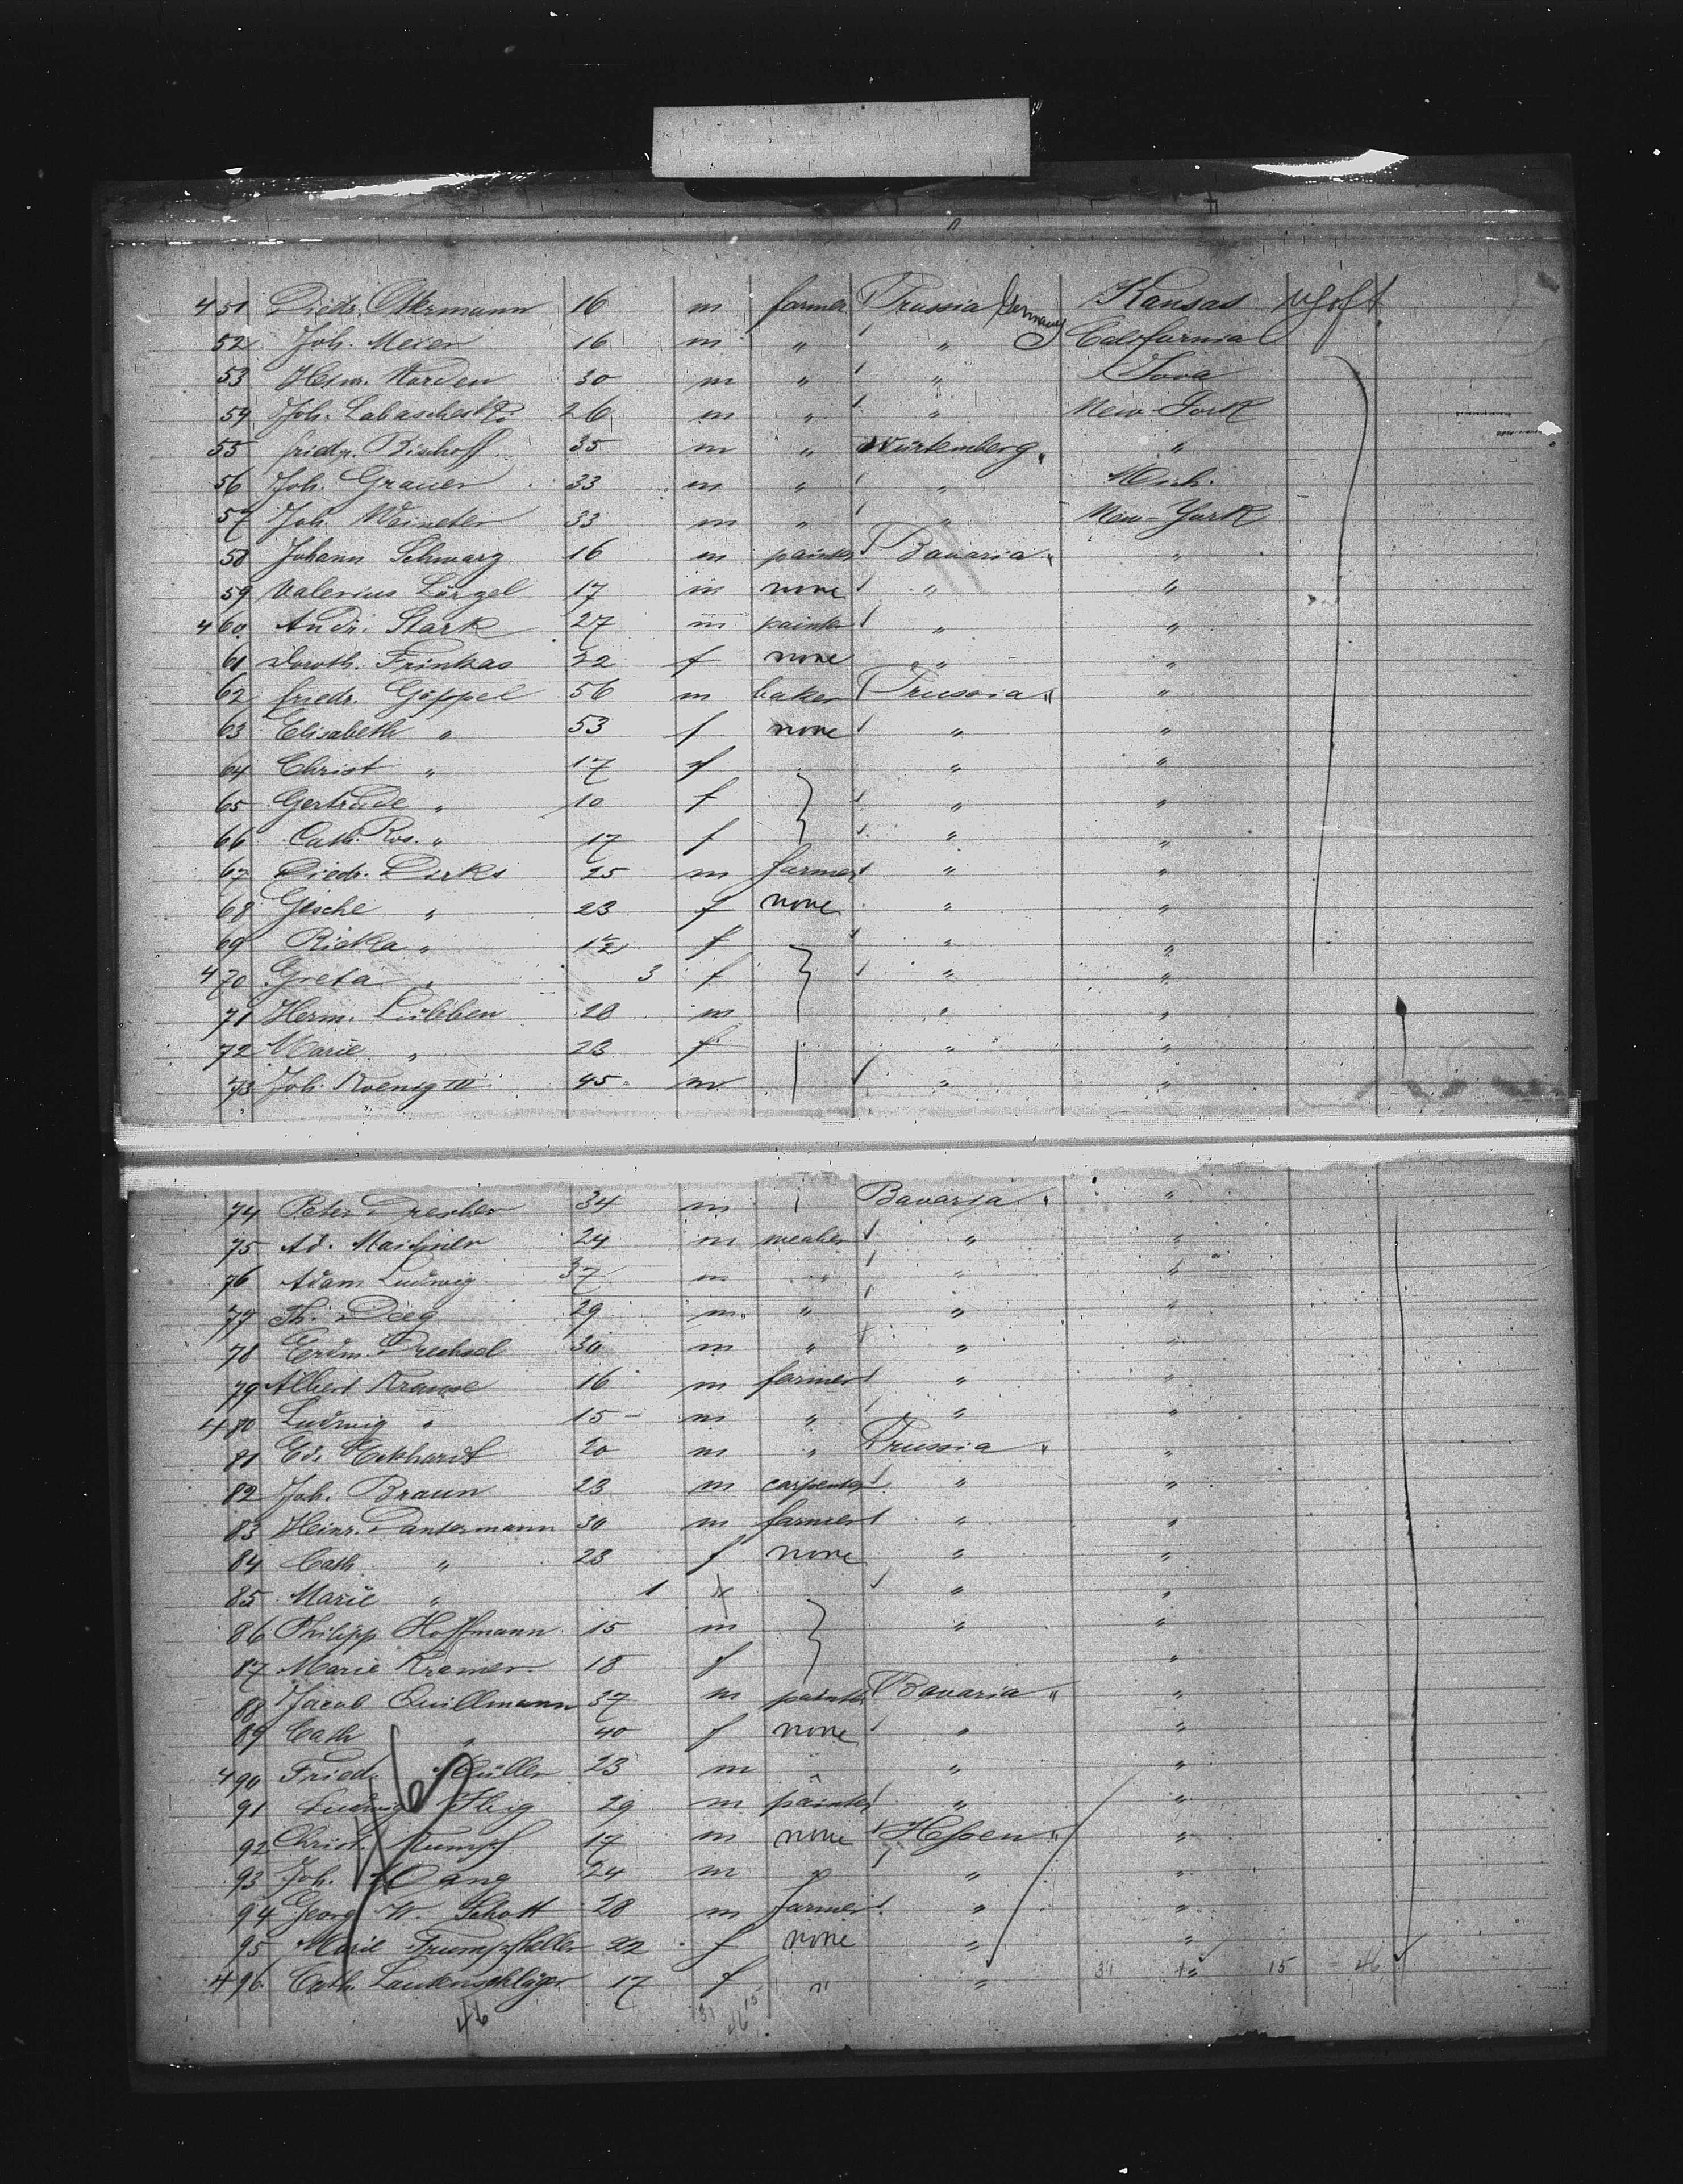 451 Diedr. Okermann 16 m farmer Prussia Germany Kansas
52 Joh. Meier 16 m " " California
53 Heinr. Norden 30 m " " Iova
54 Joh. 26 m " " New-York
55 friedr. Bischoff 35 m " Würtemberg " "
56 Joh. Grauer 33 m " " Mich.
57 Joh. 33 m " " New-York
58 Johann Schwarz 16 m painter Bavaria " "
59 Valerius Lörzel 17 m none " "
460 Andr. Stark 27 m painter " "
61 Doroth. Frinkas 22 f none " "
62 friedr. Göppel 56 m baker Prussia " "
63 Elisabeth " 53 f none " "
64 Christ " 17 f " "
65 Gertrude " 10 f " "
66 Cath. Ros. " 17 f " "
67 Diedr. Dirks 25 m farmer " "
68 Gesche " 23 f none " "
69 Ricka " 1 1/2 f " "
470 Greta " 3 f " "
71 Herm. Lübben 28 m " "
72 Marie " 23 f " "
73 Joh. Koenig III 45 m " "
74 Peter Drescher 34 m Bavaria " "
75 Ad. 24 m weaber " "
76 Adam Ludwig 37 m " " "
77 Th. Döeg 29 m " " "
78 Erdm. Drechsel 30 m " " "
79 Albert Krause 16 m farmer " "
480 Ludwig " 15 m " " "
81 Ed. Eckhardt 20 m " Prussia " "
82 Joh. Braun 23 m carpenter " "
83 Heinr. Dantermann 30 m farmer " "
84 Cath. " 23 f none " "
85 Marie " 1 f " "
86 Philipp Hoffmann 15 m " "
87 Marie Kramer 18 f "
88 Jacob Quillmann 37 m painter Bavaria " "
89 Cath " 40 f none " "
490 Fried. Müller 23 m " " "
91 Ludwig 29 m painter " "
92 Christ. Rumpf 17 m none Hessen " "
93 Joh. 24 m " " "
94 Georg W. Schott 28 m farmer " "
95 Marie Trumpfheller 22 f none " "
496 Cath. Lautenschläger 17 f " " 31 " 15 46
46
46 31 15
46